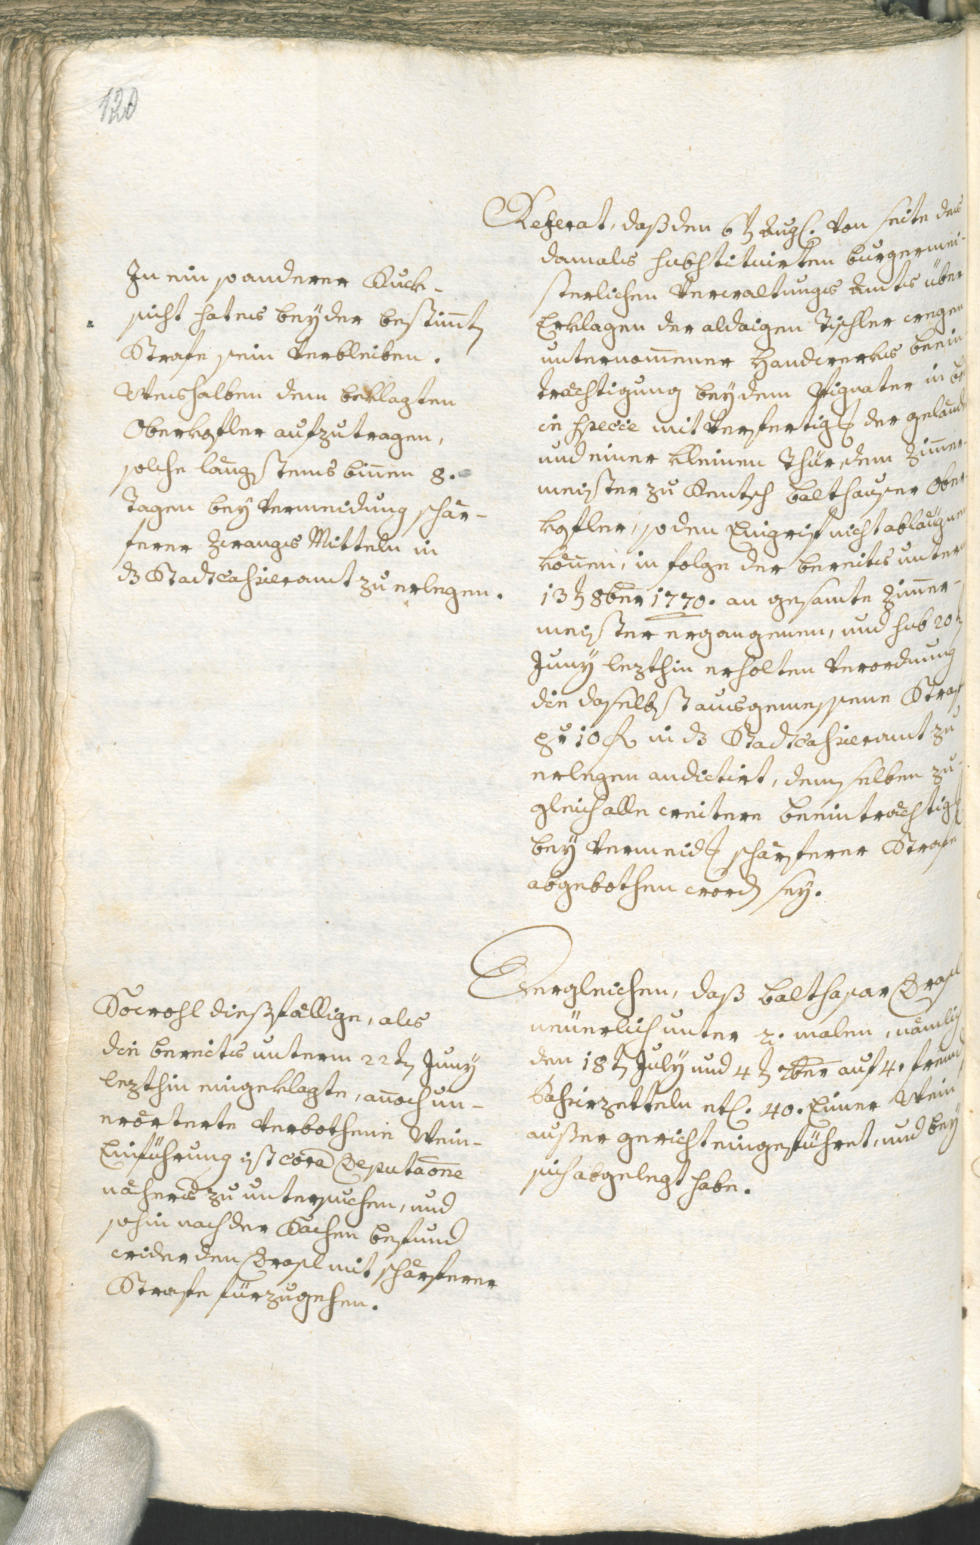 120
Referat, daß den 6ʰ Augl. von seite des
damals substituirten burgermei-
sterlichen Verwaltungs Amts über
Erklagen der aldaigen Tischler wegen
unternommener Handwerks beein-
trächtigung bey dem Pignater in
in specie mit Verfertigg der
und einer kleinen Thür dem Zimmer-
meister zu Rentsch Balthauser Ober
kofler, so den Eingrif nicht ablaugnen
können, in folge der bereits unterm
13ʰ 8ber 1770. an gesamte Zimmer-
meister ergangenen, und sub 20ʰ
Juny lezthin erholten Verordnung
die daselbst ausgemessene Straf
pr 10 fl in ds Stadtcassieramt zu
erlegen andictirt, demselben zu-
gleich alle weitere beeinträchtigg
bey Vermeidg schärferer Strafe
abgebothen word sey.
In ein so anderer Ruck-
sicht hat es bey der bestimtn
Strafe sein Verbleiben.
Weshalben dem beklagten
Oberkofler aufzutragen,
solche längstens binnen 8.
Tagen bey Vermeidung schär-
ferer Zwangs Mitteln in
ds Stadtcassieramt zu erlegen.
Dergleichen, daß Balthasar Grasl
neuerlich unter 2. malen, nämlich
den 18ʰ July und 4ʰ 7ber auf 4. fremde
Passierzetteln etl. 40. Eimer Wein
außer gericht eingeführet, und bey
sich abgelegt habe.
Sowohl dießfällige, als
die bereits unterm 22tn Juny
lezthin eingeklagte, annoch un-
erörterte verbothene Wein-
Einführung ist cora Deputaone
nähers zu untersuchen, und
sohin nach der Sachen befund
wider den Grasl mit schärferer
Strafe fürzugehen.